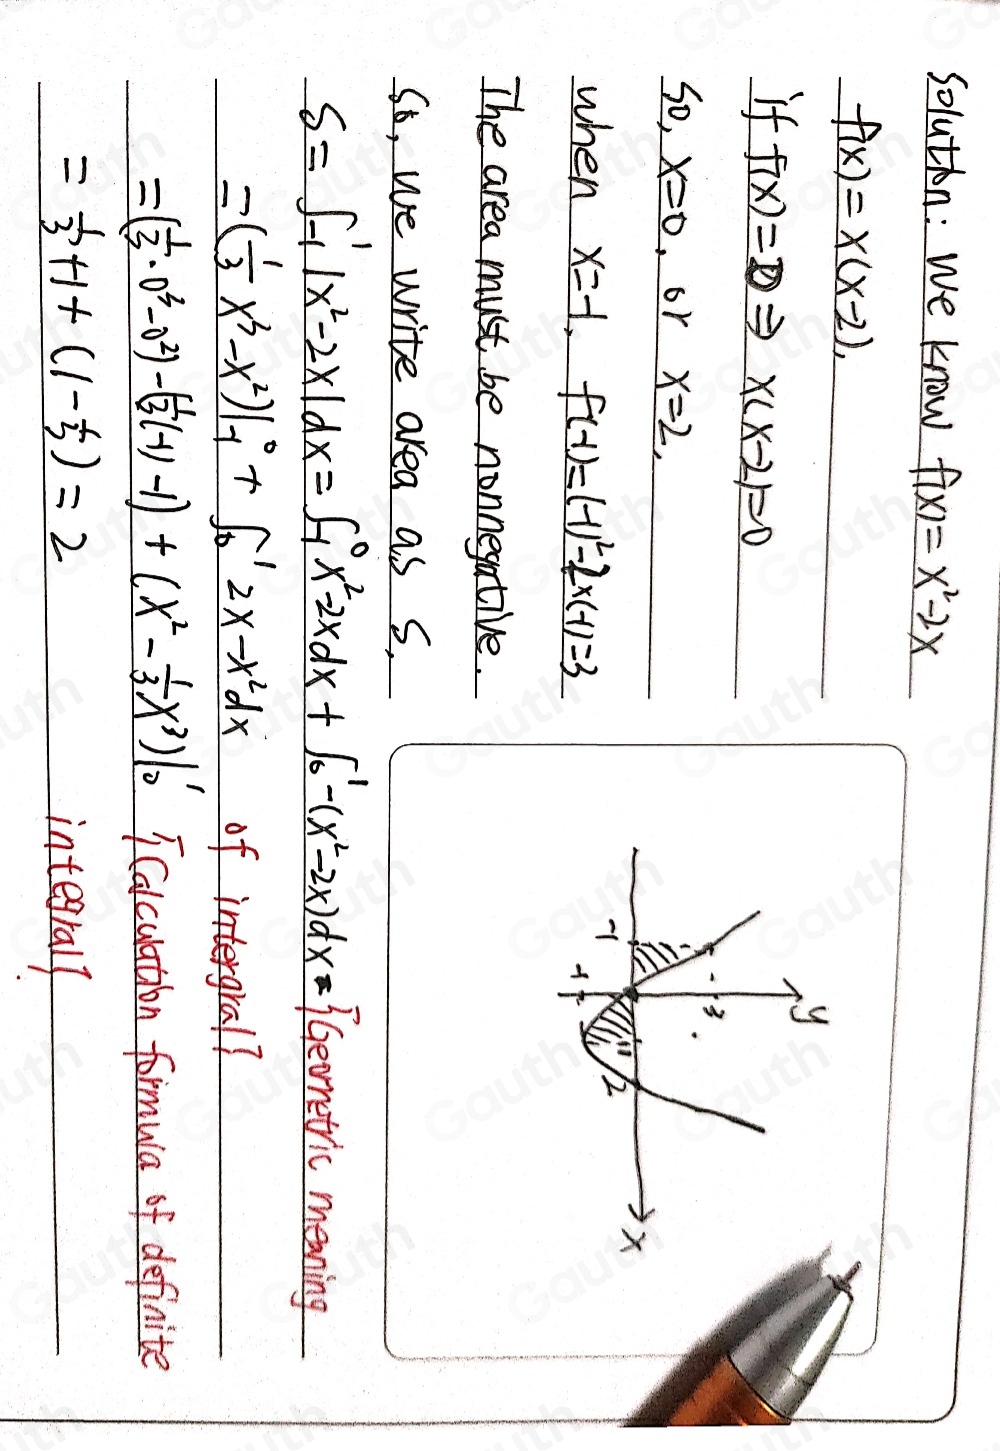 Solution: We know f(x)=x²-2x
f(x)=x(x-2),
if f(x)=0 ⇒ x(x-2)=0
So, x=0, or x=2,
when x=-1, f(-1)=(-1)²-2×(-1)=3
The area must be nonnegative.
So, we write area as S,
S= ∫₋₁¹ |x²-2x|dx = ∫₋₁⁰ x²-2xdx + ∫₀¹ -(x²-2x)dx = {Geometric meaning
=(1/3 x³-x²)|₋₁⁰ + ∫₀¹ 2x-x²dx of intergral}
=(1/3·0³-0²)-(1/3(-1)-1) + (x²-1/3x³)|₀¹ {Calculation formula of definite
= 1/3+1+(1-1/3)=2 integral}
y
3
-1
2
x
-1